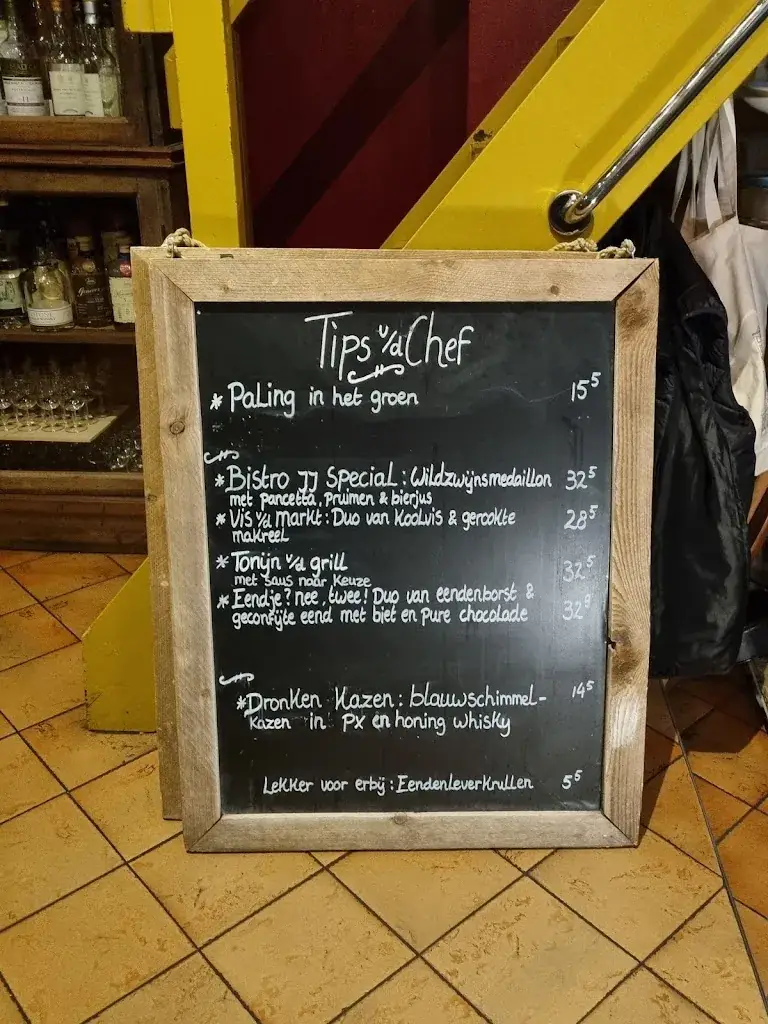 Tips v/d Chef
* Paling in het groen 15⁵
* Bistro JJ Special: Wildzwijnsmedaillon 32⁵
met pancetta, pruimen & bierjus
* Vis v/d Markt: Duo van Koolvis & gerookte 28⁵
makreel
* Tonijn v/d grill 32⁵
met saus naar keuze
* Eendje? nee, twee! Duo van eendenborst & 32⁹
geconfijte eend met biet en pure chocolade
* Dronken Kazen: blauwschimmel- 14⁵
kazen in PX en honing whisky
Lekker voor erbij: Eendenleverkrullen 5⁵